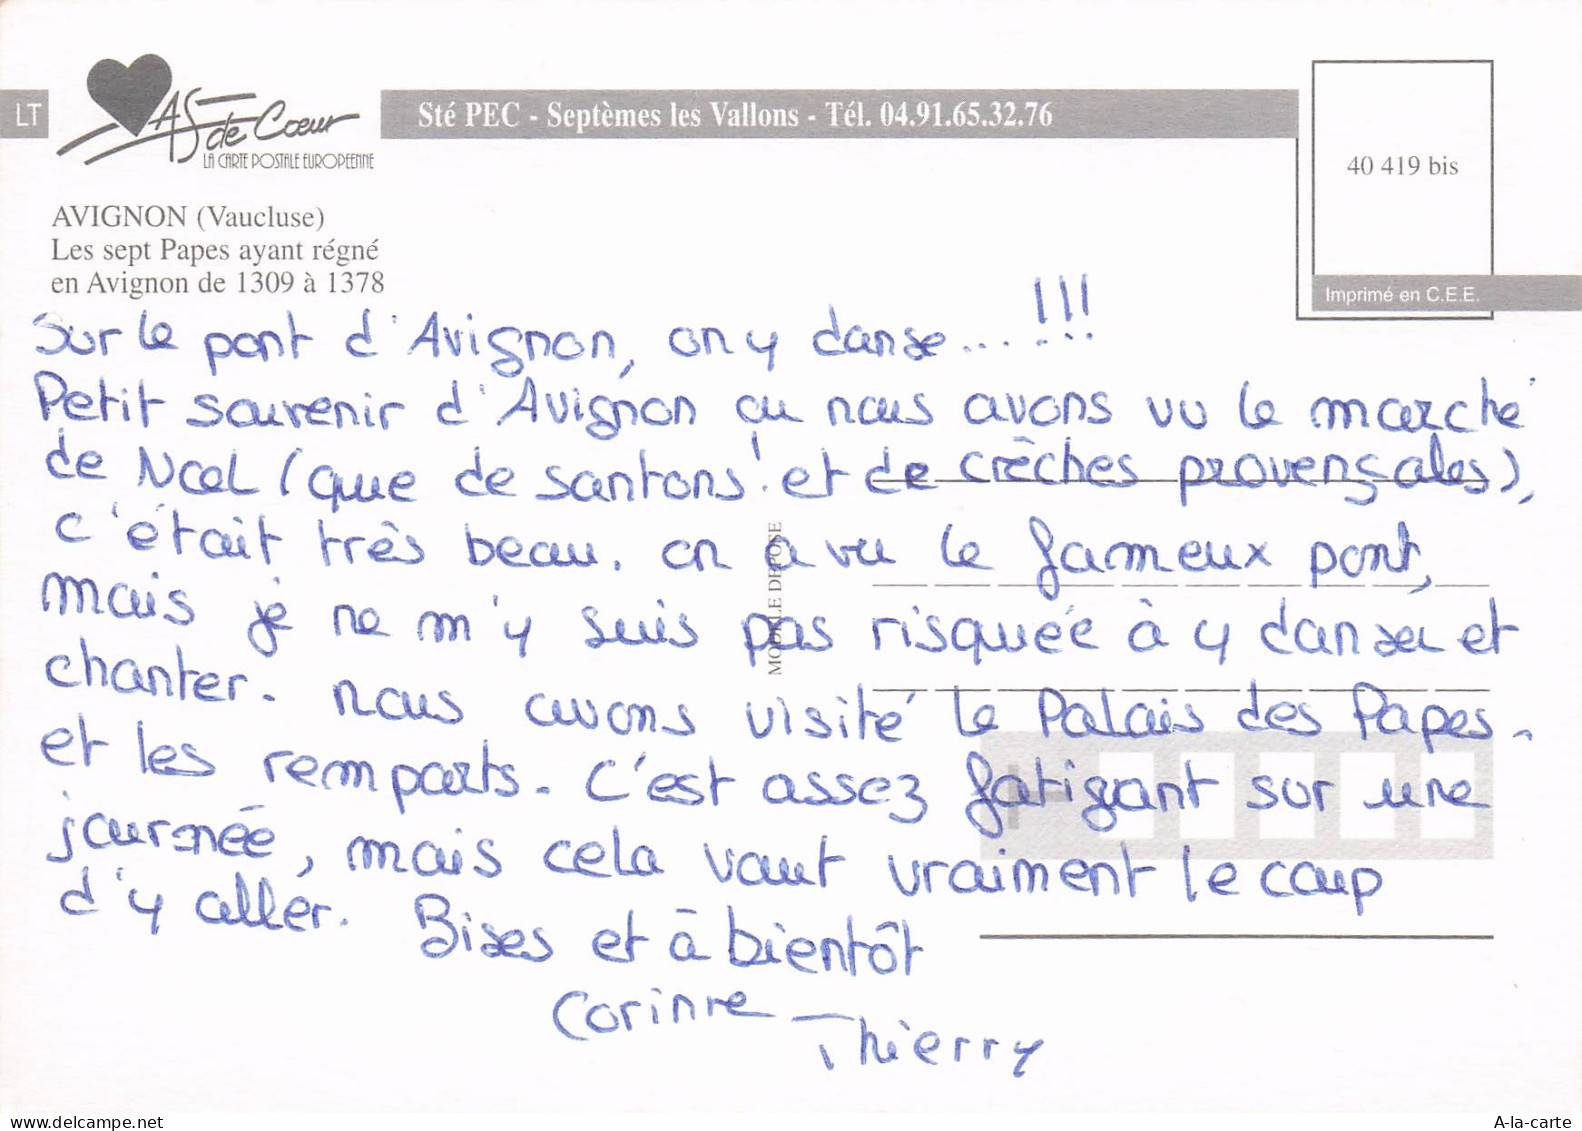 LT
As de Cœur
LA CARTE POSTALE EUROPEENNE
Sté PEC - Septèmes les Vallons - Tél. 04.91.65.32.76
40 419 bis
Imprimé en C.E.E.
AVIGNON (Vaucluse)
Les sept Papes ayant régné
en Avignon de 1309 à 1378
MODELE DEPOSE
Sur le pont d'Avignon, on y danse......!!!
Petit souvenir d'Avignon ou nous avons vu le marché
de Noël (que de santons! et de crèches provençales),
c'était très beau. on a vu le fameux pont,
mais je ne m'y suis pas risquée à y danser et
chanter. nous avons visité le Palais des Papes.
et les remparts. C'est assez fatigant sur une
journée, mais cela vaut vraiment le coup
d'y aller. Bises et à bientôt
Corinne
Thierry
www.delcampe.net
A-la-carte